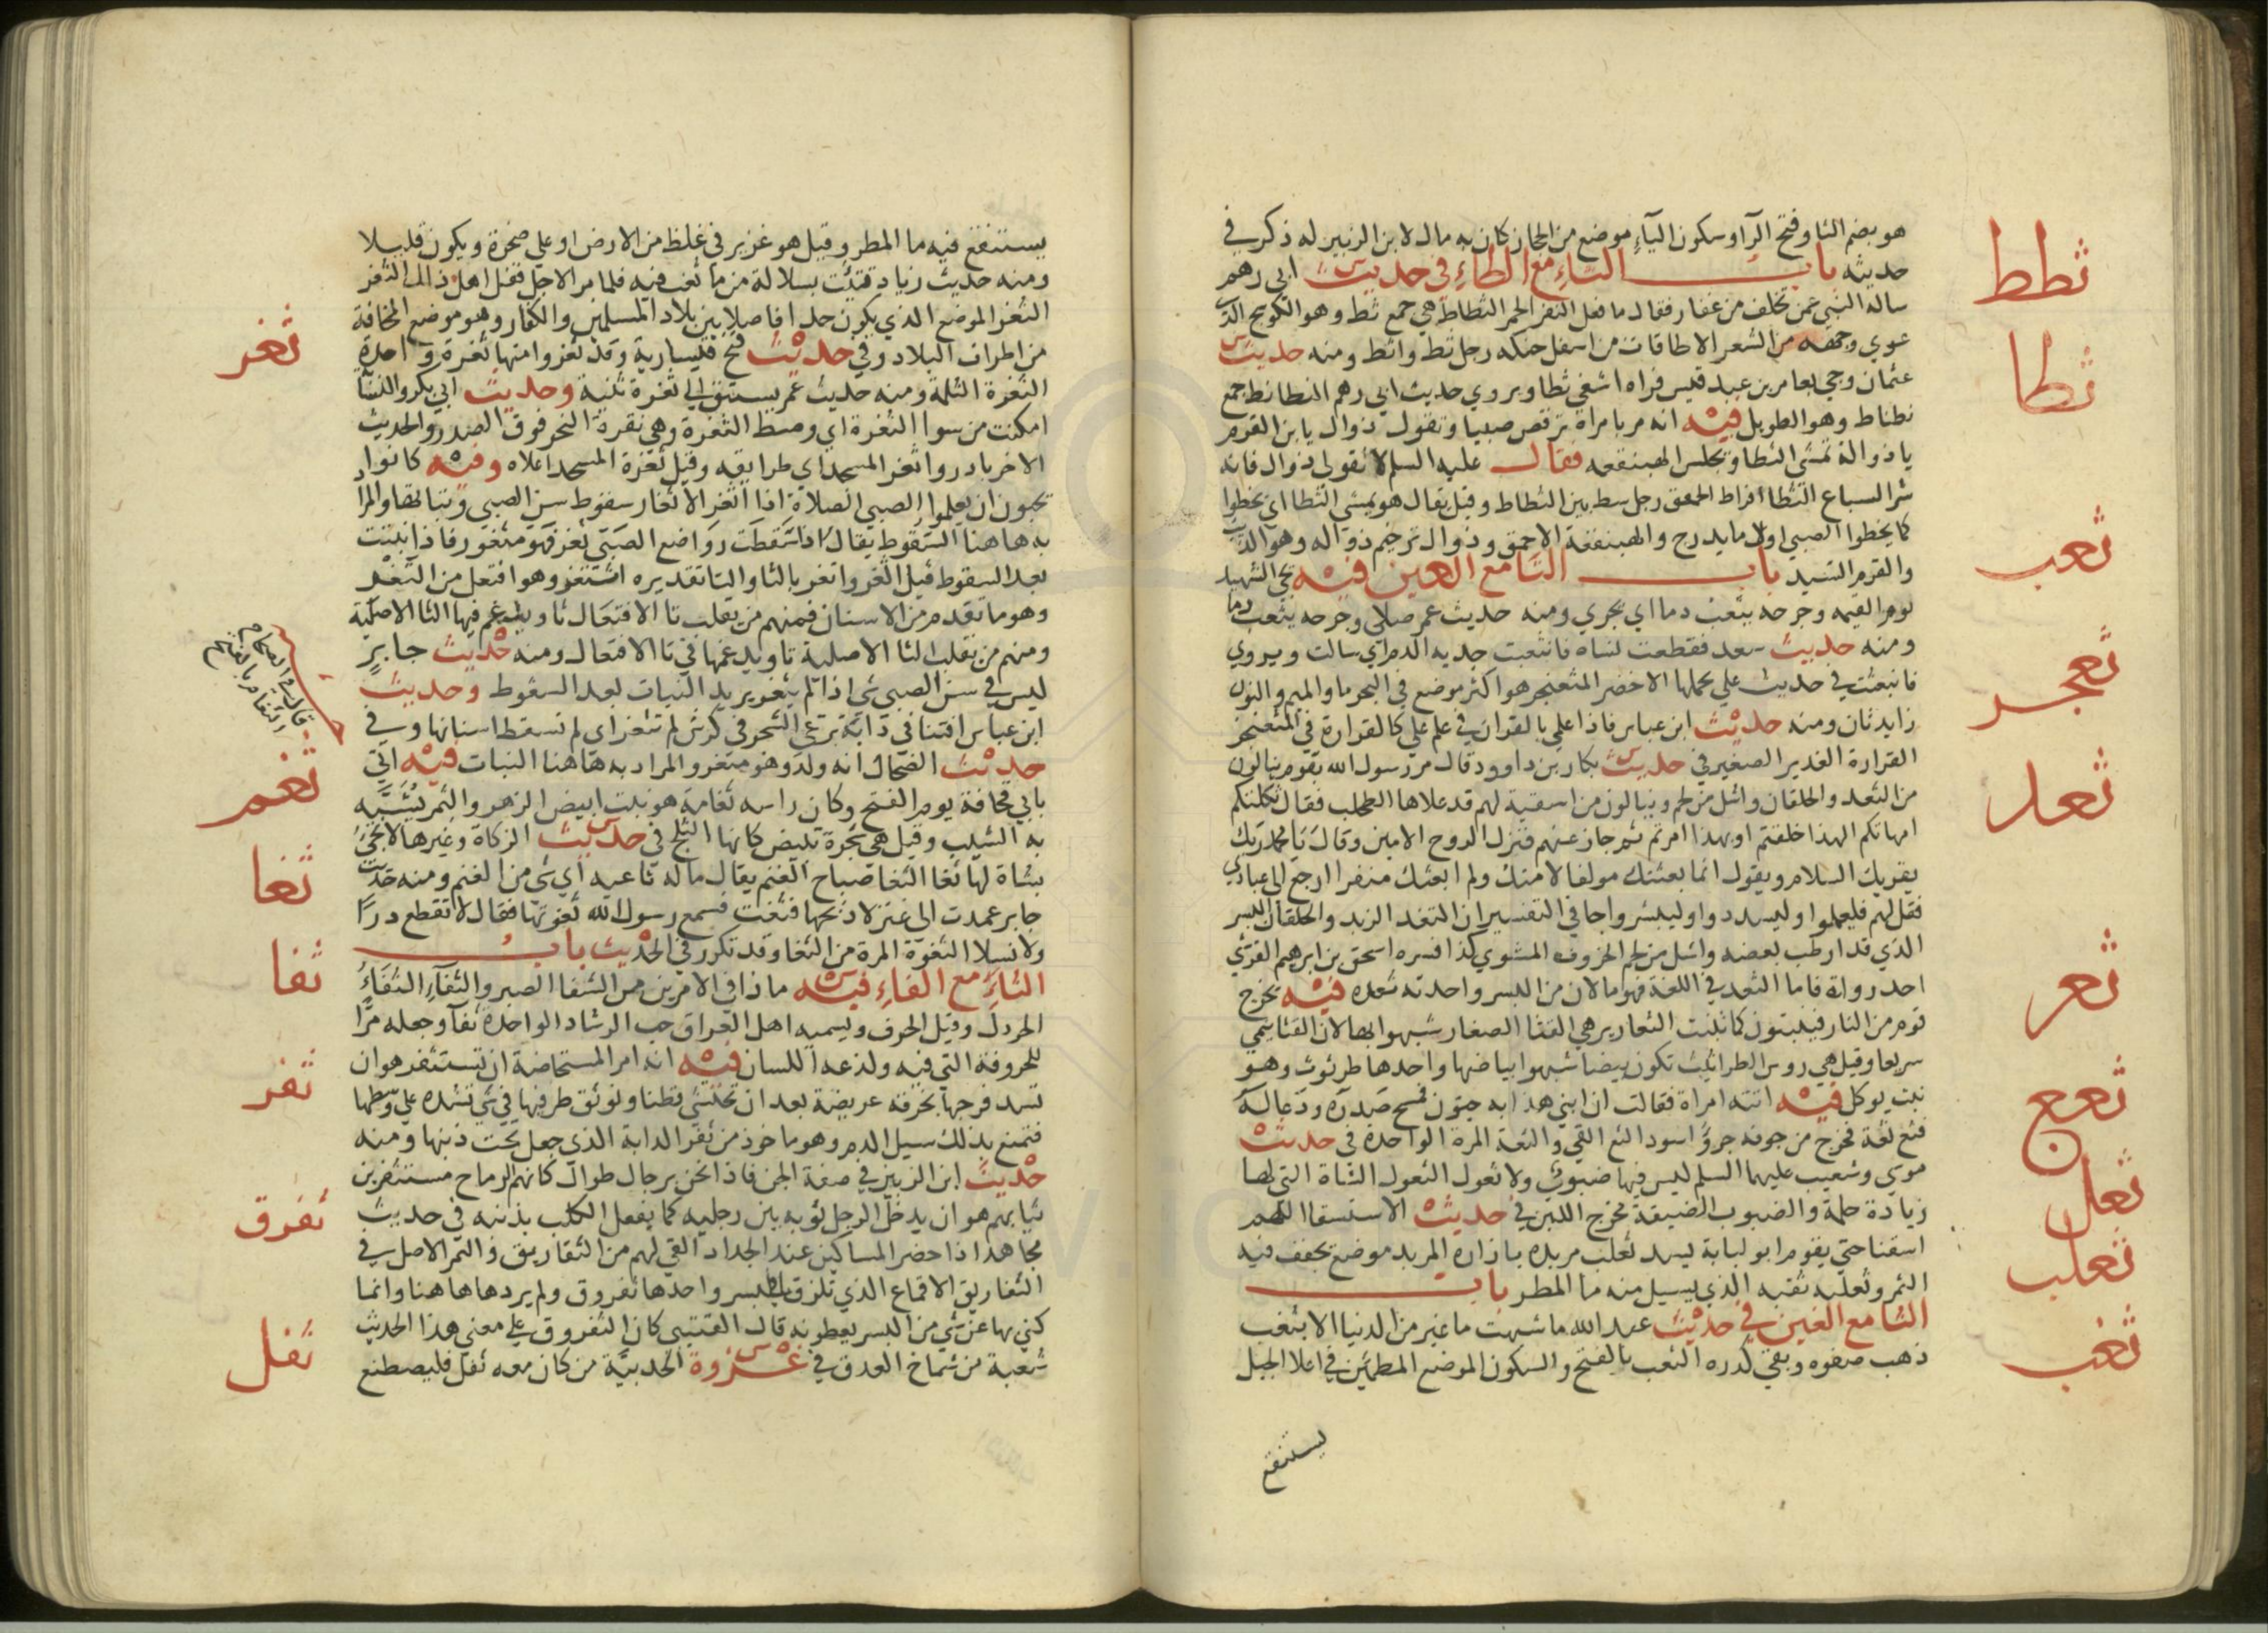 هو بضم الثا وفتح الرآ وسكون اليآء موضع من الحجاز كان به مال لابن الزبير له ذكر في
حديثه باب الثاء مع الطاء في حديث ابي رهم
ثطط
ساله النبي عمن تخلف من غفار فقال ما فعل النفر الحمر الثطاط هي جمع ثط وهو الكوسج الذي
عري وجهه من الشعر الا طاقات من اسفل حنكه رجل ثط واثط ومنه حديث
ثطا
عثمان وجي بعامر بن عبد قيس فراه اشغي ثطا ويروي حديث ابي رهم النطانط جمع
نطناط وهو الطويل فيه انه مر بامراة ترقص صبيا وتقول ذوال يا بن القرم
يا ذواله تمشي الثطا وتجلس الهبنقعه فقال عليه السلم لا تقولي ذوال فانه
شر السباع الثطا افراط الحمق رجل ثط بين الثطاط وقيل يقال هو يمشي الثطا اي يخطوا
كما يخطوا الصبي اول ما يدرج والهبنقعة الاحمق وذوال ترخيم ذواله وهو الذئب
ثعب
والقرم السيد باب الثا مع العين فيه يجي الشهيد
يوم القيمه وجرحه يثعب دما اي يجري ومنه حديث عمر صلي وجرحه يثعب دما
ومنه حديث سعد فقطعت نساه فانثعبت جديه الدم اي سالت ويروي
ثعجر
فانبعثت في حديث علي يحملها الاخضر المثعنجر هو اكثر موضع في البحر ما والميم والنون
زايدتان ومنه حديث ابن عباس فاذا علمي بالقران في علم علي كالقرارة في المثعنجر
ثعد
القرارة الغدير الصغير في حديث بكار بن داوود قال مر رسول الله بقوم ينالون
من الثعد والحلقان واشل من لحم وينالون من اسقية لهم قد علاها الطحلب فقال ثكلتكم
امهاتكم الهذا خلقتم او بهذا امرتم ثم جاز عنهم فنزل الروح الامين وقال يا محمد ربك
يقريك السلام ويقول انما بعثتك مولفا لامتك ولم ابعثك منفرا ارجع الي عبادي
فقل لهم فليعملوا وليسددوا وليبشروا جا في التفسير ان الثعد الزبد والحلقان البسر
الذي قد ارطب بعضه واشل من لحم الخروف المشوي كذا فسره اسحق بن ابرهيم القرشي
ثعر
احد رواته فاما الثعد في اللغة فهو ما لان من البسر واحدته ثعده فيه يخرج
قوم من النار فينبتون كما تنبت الثعارير هي القثا الصغار شبهوا بها لان القثا ينمي
سريعا وقيل هي روس الطراثيث تكون بيضا شبهوا ببياضها واحدها طرثوث وهو
ثعع
نبت يوكل فيه اتته امراة فقالت ان ابني هذا به جنون فمسح صدره ودعا له
فثع ثعة فخرج من جوفه جرو اسود الثع القي والثعة المرة الواحدة في حديث
ثعل
موسي وشعيب عليهما السلم ليس فيها ضبوب ولا ثعول الثعول الشاة التي لها
زيادة حلمة والضبوب الضيقة مخرج اللبن في حديث الاستسقا اللهم
ثعلب
اسقنا حتي يقوم ابو لبابة يسد ثعلب مربده بازاره المربد موضع يجفف فيه
التمر وثعلبه ثقبه الذي يسيل منه ما المطر باب
ثغب
الثا مع الغين في حديث عبد الله ما شبهت ما غبر من الدنيا الا بثغب
ذهب صفوه وبقي كدره الثغب بالفتح والسكون الموضع المطمئن في اعلا الجبل
يستنقع
يستنقع فيه ما المطر وقيل هو غدير في غلظ من الارض او علي صخرة ويكون قليلا
ومنه حديث زياد فثئت بسلالة من ما ثغب فيه فلما مر الاجل قفل اهل ذلك الثغر
ثغر
الثغر الموضع الذي يكون حدا فاصلا بين بلاد المسلمين والكفار وهو موضع المخافة
من اطراف البلاد وفي حديث فتح قيسارية وقد ثغروا منها ثغرة واحدة
الثغرة الثلمة ومنه حديث عمر يستبق الي ثغرة ثنية وحديث ابي بكر والنسابة
امكنت من سوا الثغرة اي وسط الثغرة وهي نقرة النحر فوق الصدر والحديث
الاخر بادروا ثغر المسجد اي طرايقه وقيل ثغرة المسجد اعلاه وفيه كانوا
يحبون ان يعلموا الصبي الصلاة اذا اثغر الاثغار سقوط سن الصبي ونباتها والمراد
به هاهنا السقوط يقال اذا سقطت رواضع الصبي ثغر فهو مثغور فاذا نبتت
بعد السقوط قيل اثغر واتغر بالثا والتا تقديره اثتغر وهو افتعل من الثغر
وهو ما تقدم من الاسنان فمنهم من يقلب تا الافتعال ثا ويدغم فيها الثا الاصلية
ومنهم من يقلب الثا الاصلية تا ويدغمها في تا الافتعال ومنه حديث جابر
ليس في سن الصبي شي اذا لم يثغر يريد النبات بعد السقوط وحديث
ابن عباس افتنا في دابة ترعي الشجر في كرش لم تثغر اي لم تسقط اسنانها وفي
قال في الصحاح
الثغام بالفتح
ثغم
حديث الضحاك انه ولد وهو مثغر والمراد به هاهنا النبات فيه اتي
بابي قحافة يوم الفتح وكان راسه ثغامة هو نبت ابيض الزهر والثمر يشبه
به الشيب وقيل هي شجرة تبيض كانها الثلج في حديث الزكاة وغيرها لا تجئ
ثغا
بشاة لها ثغا الثغا صياح الغنم يقال ما له ثاغيه اي شي من الغنم ومنه حديث
جابر عمدت الي عنز لاذبحها فثغت فسمع رسول الله ثغوتها فقال لا تقطع درا
ولا نسلا الثغوة المرة من الثغا وقد تكرر في الحديث باب
ثفا
الثاء مع الفاء فيه ماذا في الامرين من الشفا الصبر والثفآء الثفاء
الخردل وقيل الحرف ويسميه اهل العراق حب الرشاد الواحدة ثفآ وجعله مرا
ثفر
للحروفة التي فيه ولذعه اللسان فيه انه امر المستحاضة ان تستثفر هو ان
تشد فرجها بخرقه عريضة بعد ان تحتشي قطنا وتوثق طرفيها في شي تشده علي وسطها
فتمنع بذلك سيل الدم وهو ماخوذ من ثفر الدابة الذي جعل تحت ذنبها ومنه
حديث ابن الزبير في صفة الجن فاذا نحن برجال طوال كانهم الرماح مستثفرين
ثفرق
ثيابهم هو ان يدخل الرجل ثوبه بين رجليه كما يفعل الكلب بذنبه في حديث
مجاهد اذا حضر المساكين عند الجداد القي لهم من الثفاريق والتمر الاصل في
الثفاريق الاقماع الذي تلزق بالبسر واحدها ثفروق ولم يردها هاهنا وانما
كني بها عن شي من البسر يعطونه قال القتيبي كان الثفروق علي معني هذا الحديث
ثفل
شعبة من شماخ العدق في غزوة الحديبية من كان معه ثفل فليصطنع